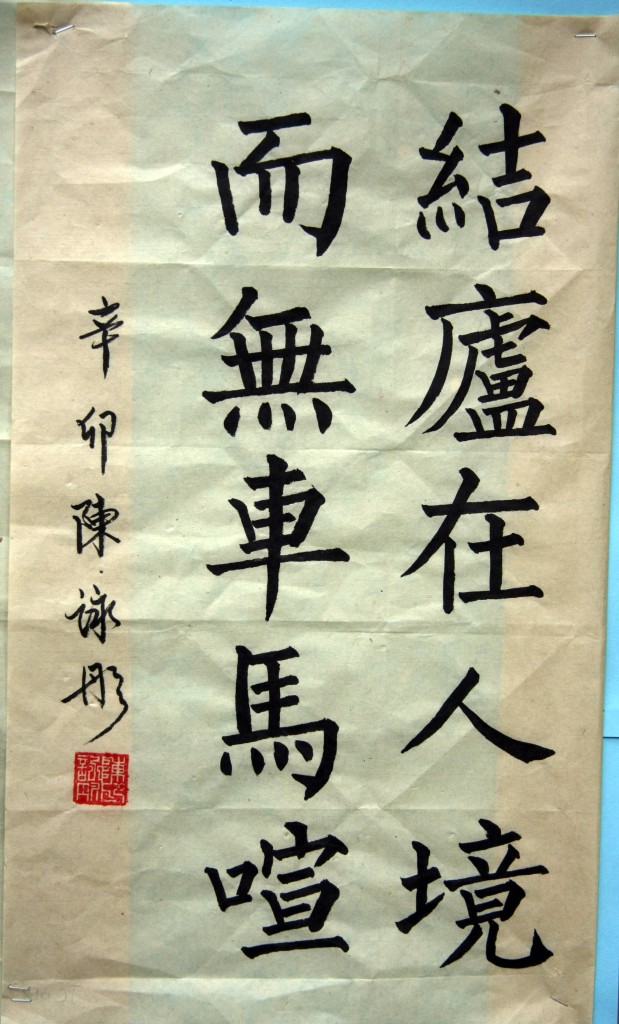 結廬在人境
而無車馬喧
辛卯陳詠彤